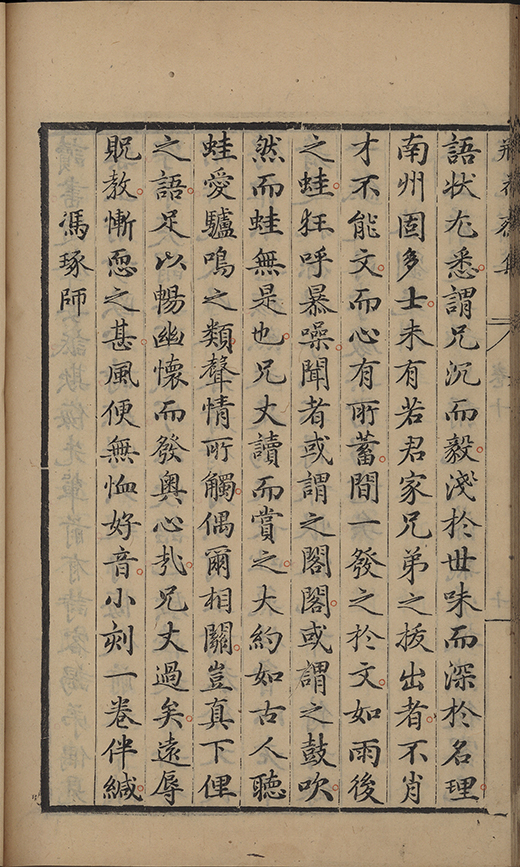 語狀尤悉謂兄沉而毅淺於世味而深於名理
南州固多士未有若君家兄弟之拔出者不肖
才不能文而心有所蓄間一發之於文如雨後
之蛙狂呼暴噪聞者或謂之閣閣或謂之鼓吹
然而蛙無是也兄丈讀而賞之大約如古人聽
蛙愛驢鳴之類聲情所觸偶爾相關豈真下俚
之語足以暢幽懷而發奧心㢤兄丈過矣遠辱
貺教慚恧之甚風便無恤好音小刻一卷伴緘
馮琢師